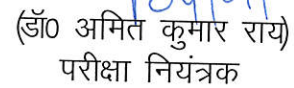 (डॉ0 अमित कुमार राय)
परीक्षा नियंत्रक